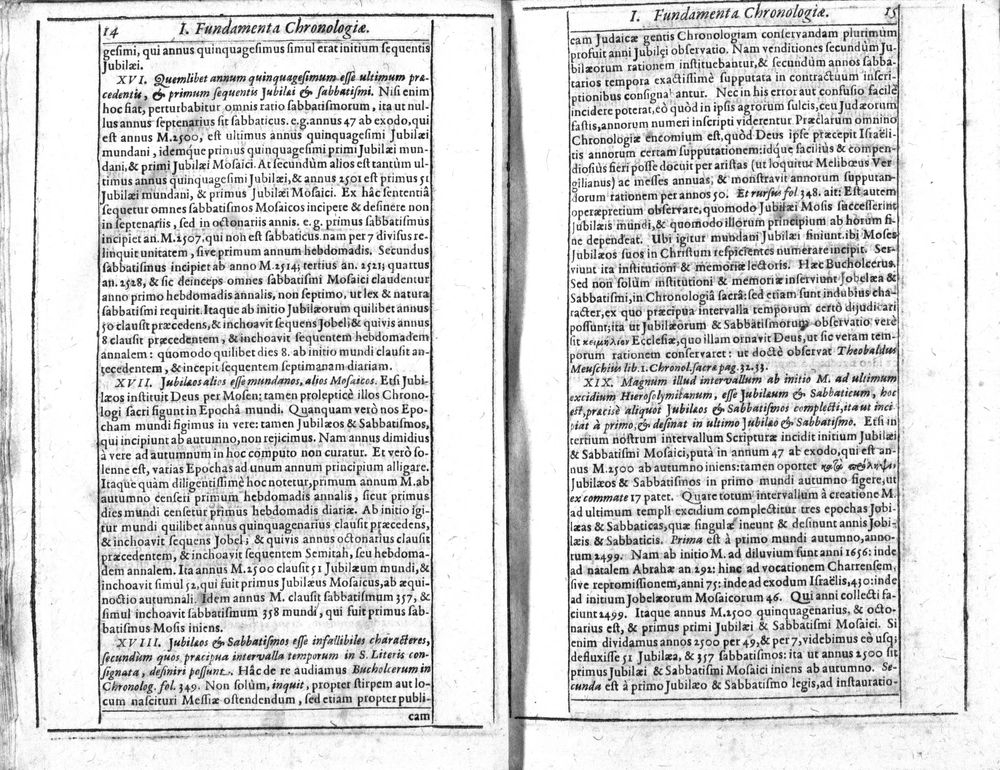 14 I. Fundamenta Chronologiæ.
gesimi, qui annus quinquagesimus simul erat initium sequentis
Jubilæi.
XVI. Quemlibet annum quinquagesimum esse ultimum præ-
cedentis, & primum sequentis Jubilæi & sabbatismi. Nisi enim
hoc fiat, perturbabitur omnis ratio sabbatismorum, ita ut nul-
lus annus septenarius sit sabbaticus. e.g. annus 47 ab exodo, qui
est annus M.2500, est ultimus annus quinquagesimi Jubilæi
mundani, idemque primus quinquagesimi primi Jubilæi mun-
dani, & primi Jubilæi Mosaici. At secundùm alios est tantùm ul-
timus annus quinquagesimi Jubilæi, & annus 2501 est primus 51
Jubilæi mundani, & primus Jubilæi Mosaici. Ex hâc sententiâ
sequetur omnes sabbatismos Mosaicos incipere & desinere non
in septenariis, sed in octonariis annis. e. g. primus sabbatismus
incipiet an. M.2507. qui non est sabbaticus. nam per 7 divisus re-
linquit unitatem, sive primum annum hebdomadis. Secundus
sabbatismus incipiet ab anno M.2514; tertius an. 2521; quartus
an. 2528, & sic deinceps omnes sabbatismi Mosaici claudentur
anno primo hebdomadis annalis, non septimo, ut lex & natura
sabbatismi requirit. Itaque ab initio Jubilæorum quilibet annus
50 clausit præcedens, & inchoavit sequens Jobel; & quivis annus
8 clausit præcedentem, & inchoavit sequentem hebdomadem
annalem: quomodo quilibet dies 8. ab initio mundi clausit an-
tecedentem, & incepit sequentem septimanam diariam.
XVII. Jubilæos alios esse mundanos, alios Mosaicos. Etsi Jubi-
læos instituit Deus per Mosen; tamen prolepticè illos Chrono-
logi sacri figunt in Epochâ mundi. Quanquam verò nos Epo-
cham mundi figimus in vere: tamen Jubilæos & Sabbatismos,
qui incipiunt ab autumno, non rejicimus. Nam annus dimidius
à vere ad autumnum in hoc computo non curatur. Et verò so-
lenne est, varias Epochas ad unum annum principium alligare.
Itaque quàm diligentissimè hoc notetur, primum annum M. ab
autumno censeri primum hebdomadis annalis, sicut primus
dies mundi censetur primus hebdomadis diariæ. Ab initio igi-
tur mundi quilibet annus quinquagenarius clausit præcedens,
& inchoavit sequens Jobel; & quivis annus octonarius clausit
præcedentem, & inchoavit sequentem Semitah, seu hebdoma-
dem annalem. Ita annus M.2500 clausit 51 Jubilæum mundi, &
inchoavit simul 52, qui fuit primus Jubilæus Mosaicus, ab æqui-
noctio autumnali. Idem annus M. clausit sabbatismum 357, &
simul inchoavit sabbatismum 358 mundi, qui fuit primus sab-
batismus Mosis iniens.
XVIII. Jubilæos & Sabbatismos esse infallibiles characteres,
secundum quos præcipua intervalla temporum in S. Literis con-
signata, definiri possunt. Hâc de re audiamus Bucholcerum in
Chronolog. fol. 349. Non solùm, inquit, propter stirpem aut lo-
cum nascituri Messiæ ostendendum, sed etiam propter publi-
cam
I. Fundamenta Chronologiæ. 15
cam Judaicæ gentis Chronologiam conservandam plurimùm
profuit anni Jubilei observatio. Nam venditiones secundùm Ju-
bilæorum rationem instituebantur, & secundùm annos sabba-
tarios tempora exactissimè supputata in contractuum inscri-
ptionibus consignabantur. Nec in his error aut confusio facilè
incidere poterat, eò quòd in ipsis agrorum sulcis, ceu Judæorum
fastis, annorum numeri inscripti viderentur. Præclarum omnino
Chronologiæ encomium est, quòd Deus ipse præcepit Israëli-
tis annorum certam supputationem: idque facilius & compen-
diosiùs fieri posse docuit per aristas (ut loquitur Melibœus Ver-
gilianus) ac messes annuas, & monstravit annorum supputan-
dorum rationem per annos 50. Et rursus fol. 348. ait: Est autem
operæpretium observare, quomodo Jubilæi Mosis successerint
Jubilæis mundi, & quomodo illorum principium ab horum fi-
ne dependeat. Ubi igitur mundani Jubilæi finiunt, ibi Moses
Jubilæos suos in Christum respicientes numerare incipit. Ser-
viunt ita institutioni & memoriæ lectoris. Hæc Bucholcerus.
Sed non solùm institutioni & memoriæ inserviunt Jobelæa &
Sabbatismi, in Chronologiâ sacrâ: sed etiam sunt indubius cha-
racter, ex quo præcipua intervalla temporum certò dijudicari
possunt; ita ut Jubilæorum & Sabbatismorum observatio verè
sit κειμήλιον Ecclesiæ, quo illam ornavit Deus, ut sic veram tem-
porum rationem conservaret: ut doctè observat Theobaldus
Meuschius lib. 1. Chronol. sacræ pag. 32. 33.
XIX. Magnum illud intervallum ab initio M. ad ultimum
excidium Hierosolymitanum, esse Jubilæum & Sabbaticum, hoc
est, præcisè aliquot Jubilæos & Sabbatismos complecti, ita ut inci
piat à primo, & desinat in ultimo Jubilæo & Sabbatismo. Etsi in
tertium nostrum intervallum Scripturæ incidit initium Jubilæi
& Sabbatismi Mosaici, puta in annum 47 ab exodo, qui est an-
nus M.2500 ab autumno iniens: tamen oportet
Jubilæos & Sabbatismos in primo mundi autumno figere, ut
ex commate 17 patet. Quare totum intervallum à creatione M.
ad ultimum templi excidium complectitur tres epochas Jobi-
læas & Sabbaticas, quæ singulæ ineunt & desinunt annis Jobi-
læis & Sabbaticis. Prima est à primo mundi autumno, anno-
rum 2499. Nam ab initio M. ad diluvium sunt anni 1656: inde
ad natalem Abrahæ an. 292: hinc ad vocationem Charrensem,
sive repromissionem, anni 75: inde ad exodum Israëlis, 430: inde
ad initium Jobelæorum Mosaicorum 46. Qui anni collecti fa-
ciunt 2499. Itaque annus M.2500 quinquagenarius, & octo-
narius est, & primus primi Jubilæi & Sabbatismi Mosaici. Si
enim dividamus annos 2500 per 49, & per 7, videbimus eò usq;
defluxisse 51 Jubilæa, & 357 sabbatismos: ita ut annus 2500 sit
primus Jubilæi & Sabbatismi Mosaici iniens ab autumno. Se-
cunda est à primo Jubilæo & Sabbatismo legis, ad instauratio-